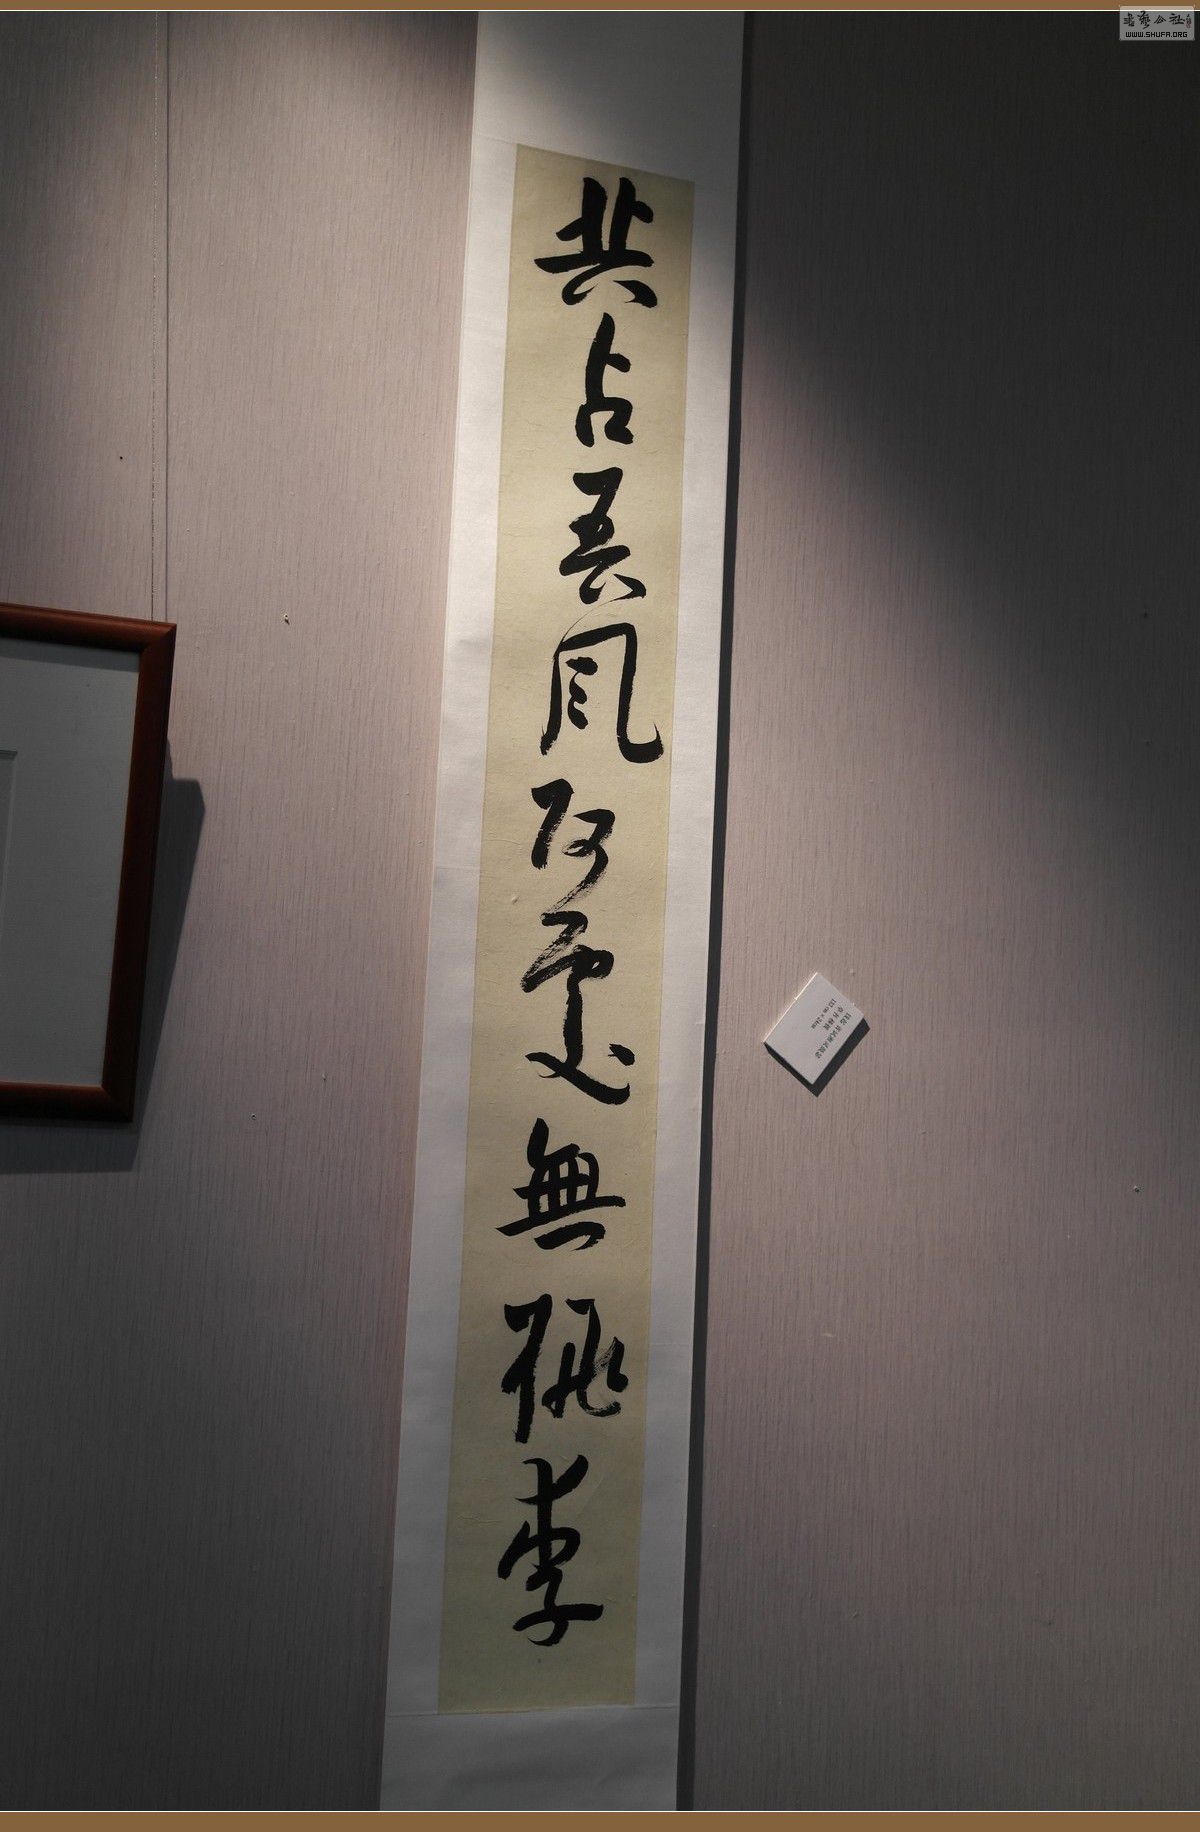 共占春風何處無桃李
書藝公社
WWW.SHUFA.ORG